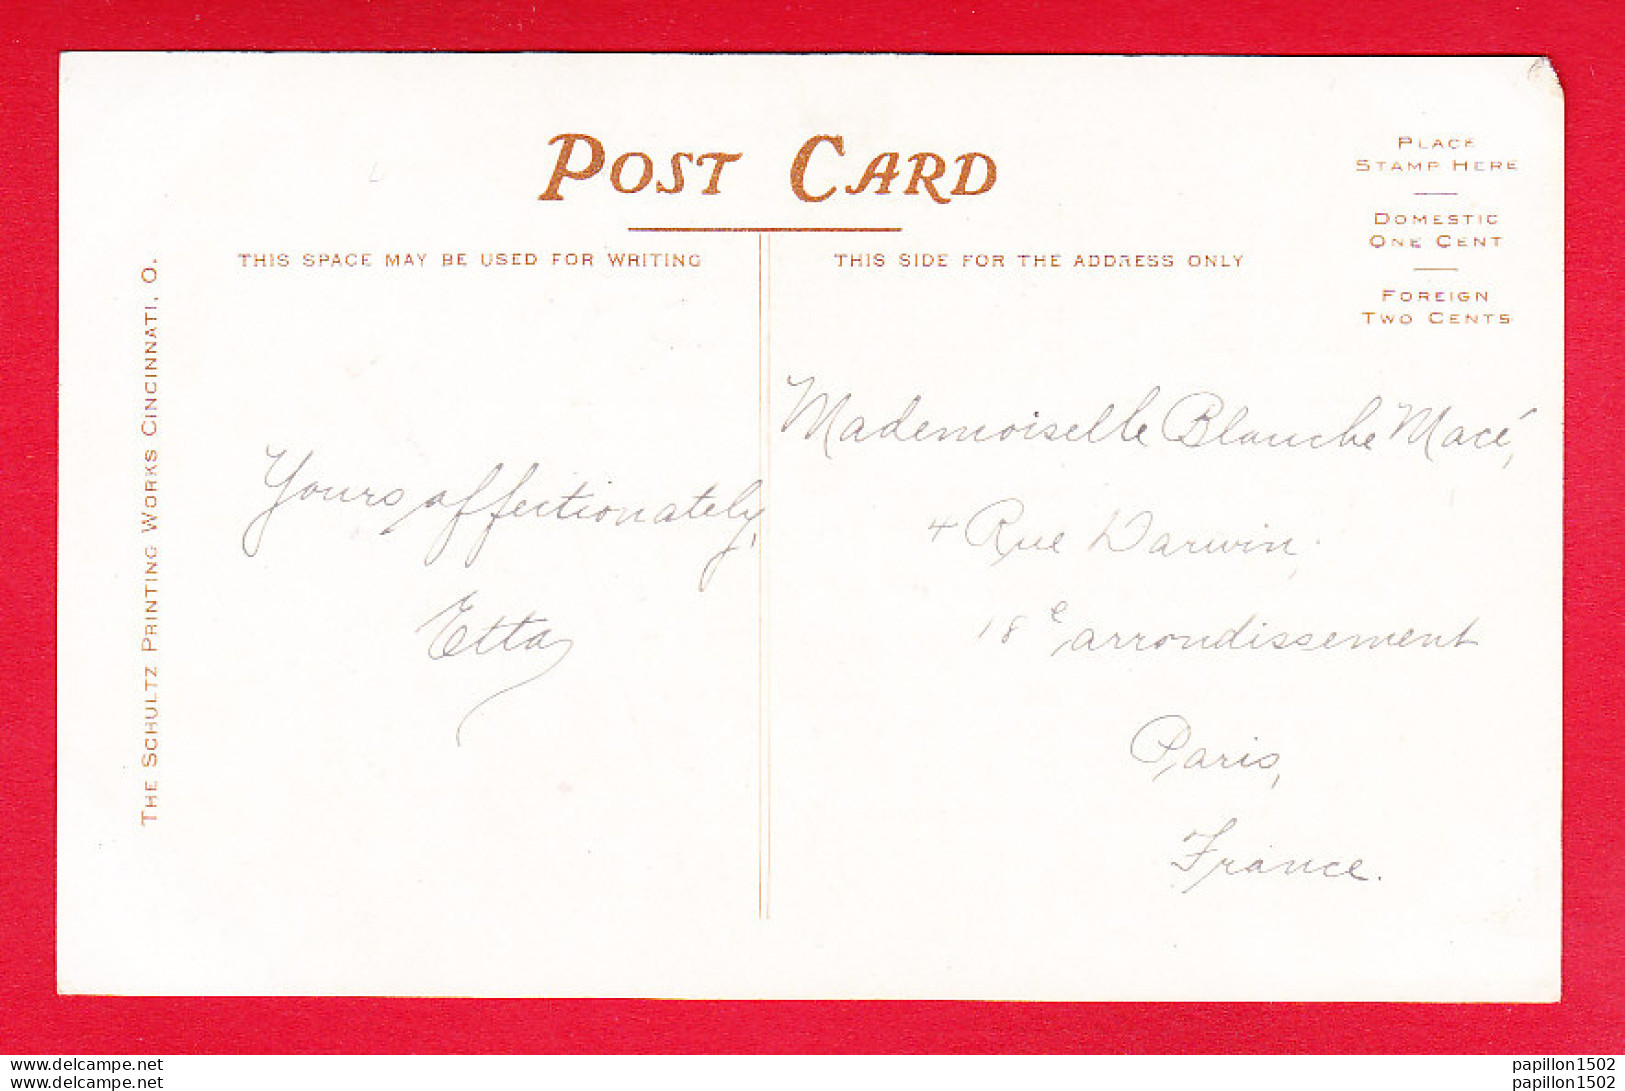 POST CARD
PLACE
STAMP HERE
DOMESTIC
ONE CENT
FOREIGN
TWO CENTS
THIS SPACE MAY BE USED FOR WRITING
THIS SIDE FOR THE ADDRESS ONLY
THE SCHULTZ PRINTING WORKS CINCINNATI, O.
Yours affectionately,
Etta
Mademoiselle Blanche Macé,
4 Rue Darwin,
18e arrondissement
Paris,
France.
www.delcampe.net
papillon1502
www.delcampe.net
papillon1502